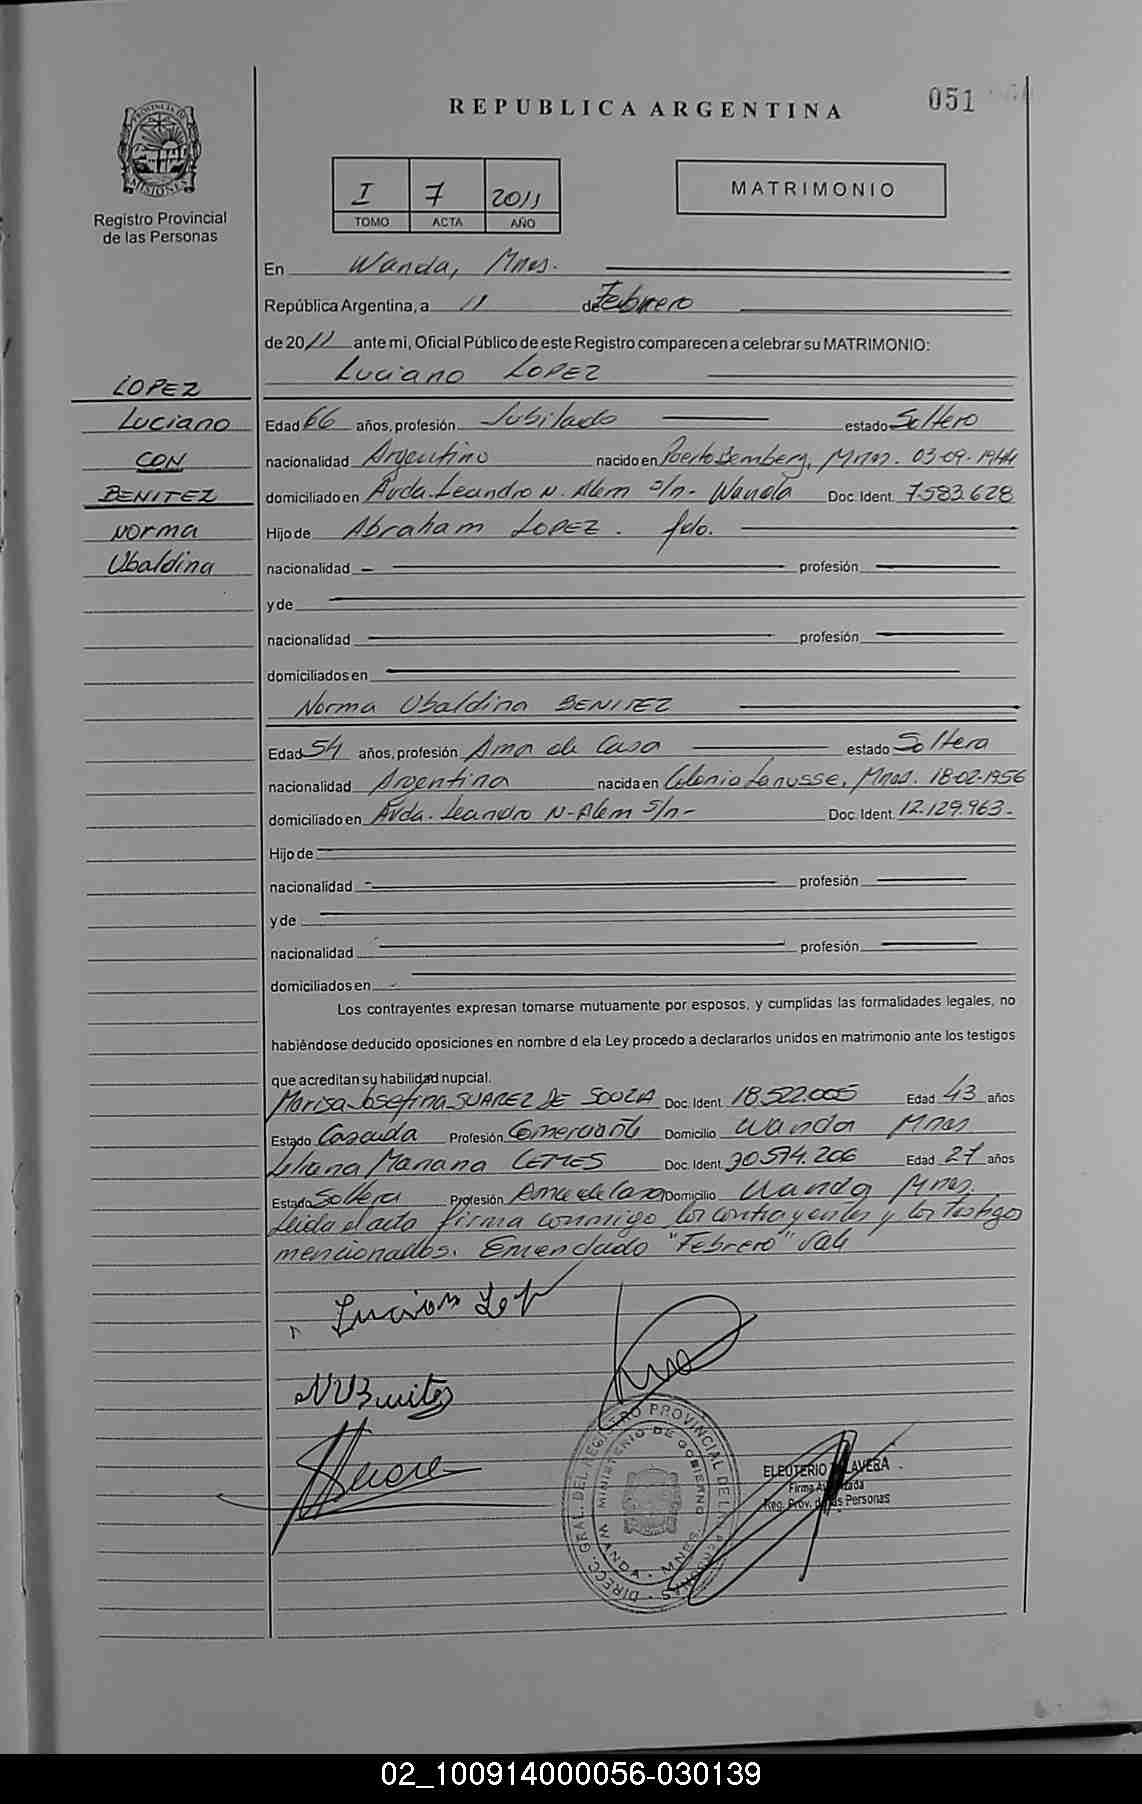 REPUBLICA ARGENTINA
051
PROVINCIA DE MISIONES
Registro Provincial
de las Personas
I 7 2011
TOMO ACTA AÑO
MATRIMONIO
En Wanda, Mnes.
República Argentina, a 11 de Febrero
de 2011 ante mi, Oficial Público de este Registro comparecen a celebrar su MATRIMONIO:
Luciano LOPEZ
LOPEZ
Luciano
CON
BENITEZ
Norma
Ubaldina
Edad 66 años, profesión Jubilado estado Soltero
nacionalidad Argentino nacido en Puerto Bemberg, Mnes. 03-09-1944
domiciliado en Avda. Leandro N. Alem s/n - Wanda Doc. Ident. 7.583.628
Hijo de Abraham LOPEZ. fdo.
nacionalidad profesión
y de
nacionalidad profesión
domiciliados en
Norma Ubaldina BENITEZ
Edad 54 años, profesión Ama de Casa estado Soltera
nacionalidad Argentina nacida en Colonia Lanusse, Mnes. 18-02-1956
domiciliado en Avda. Leandro N. Alem s/n - Doc. Ident. 12.129.963 -
Hijo de
nacionalidad profesión
y de
nacionalidad profesión
domiciliados en
Los contrayentes expresan tomarse mutuamente por esposos, y cumplidas las formalidades legales, no
habiéndose deducido oposiciones en nombre d ela Ley procedo a declararlos unidos en matrimonio ante los testigos
que acreditan su habilidad nupcial.
Marisa Josefina SUAREZ DE SOUZA Doc. Ident. 18.522.005 Edad 43 años
Estado Casada Profesión Comerciante Domicilio Wanda Mnes
Liliana Mariana LEMES Doc. Ident. 30.574.206 Edad 27 años
Estado Soltera Profesión Ama de Casa Domicilio Wanda Mnes.
Leida el acta firma conmigo los contrayentes y los testigos
mencionados. Emendado "Febrero" Vale
Luciano Lopez
NUBenitez
DIRECC. GRAL. DEL REGISTRO PROVINCIAL DE LAS PERSONAS
MINISTERIO DE GOBIERNO
WANDA - MNES.
ELEUTERIO TALAVERA
Firma Autorizada
Reg. Prov. de las Personas
02_100914000056-030139